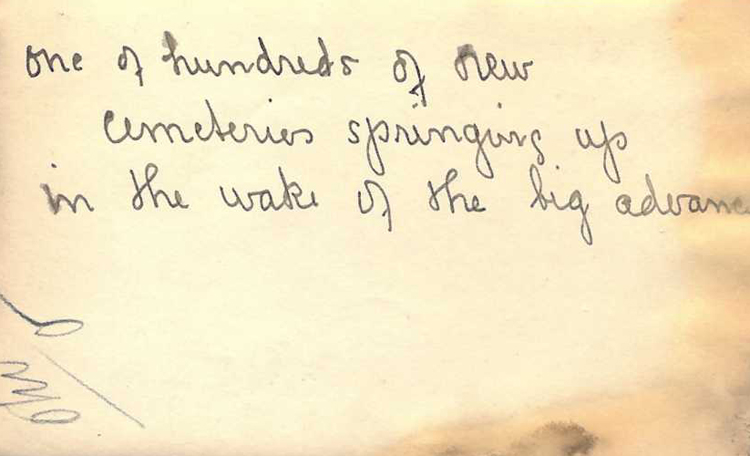 one of hundreds of new
cemeteries springing up
in the wake of the big advance